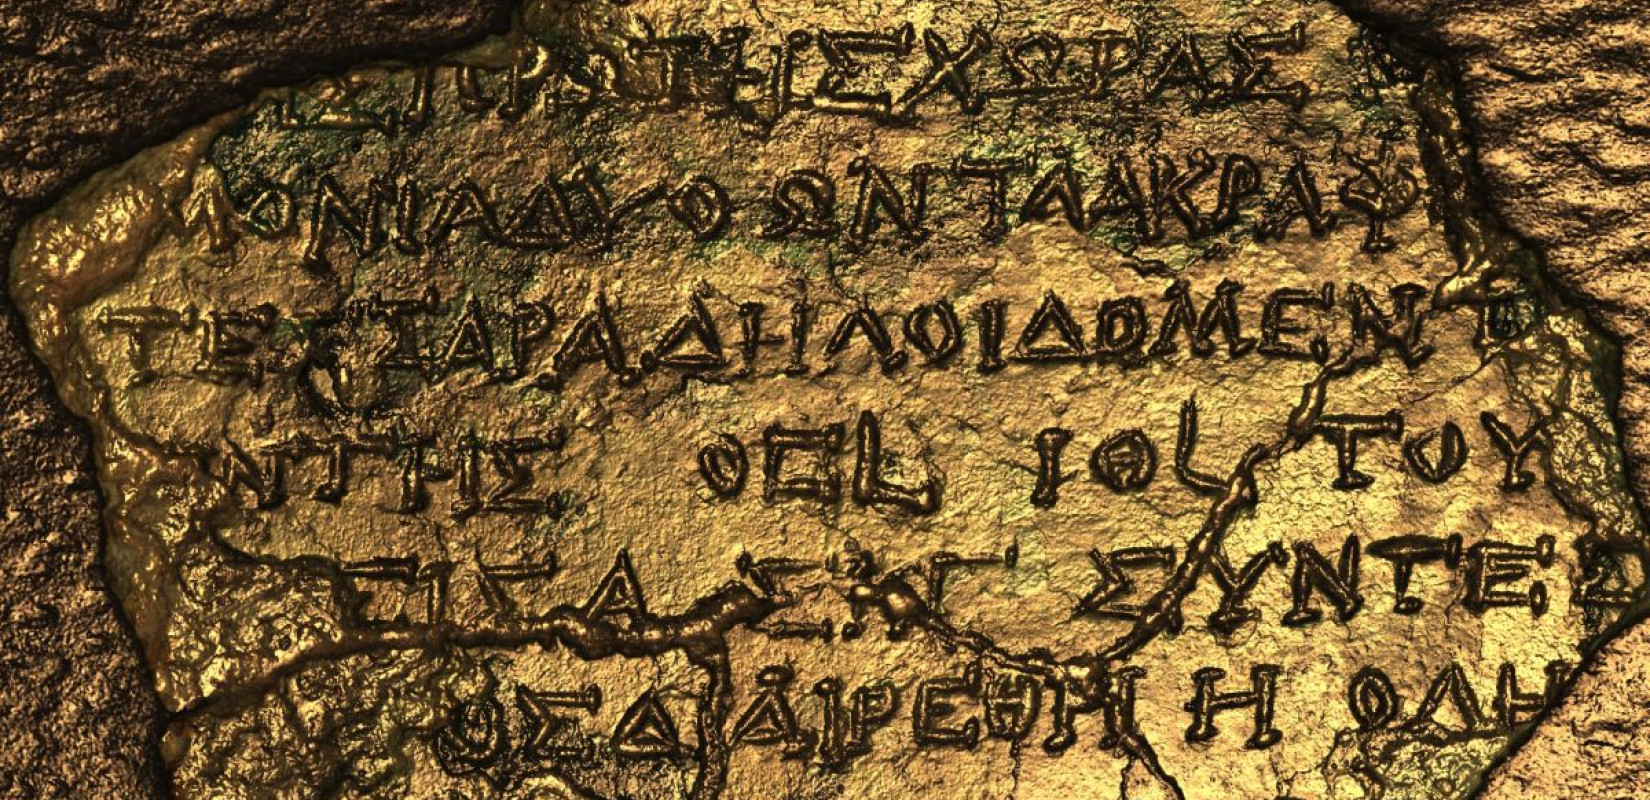 ΑΣ ΠΡΟ ΤΗΣ ΧΩΡΑΣ
ΜΟΝΙΑ ΔΥΟ ΩΝ ΤΑ ΑΚΡΑ Φ
ΤΕΣΣΑΡΑ ΔΗΛΟΙ Δ Ο ΜΕΝ Τ
ΝΤΗΣ ΟϚL ΙΘL ΤΟΥ
Σ ΙΣΑ ΣΚΓ ΣΥΝ ΤΕΣ
ΟΣ ΔΙΑΙΡΕΘΗ Η ΟΛΗ